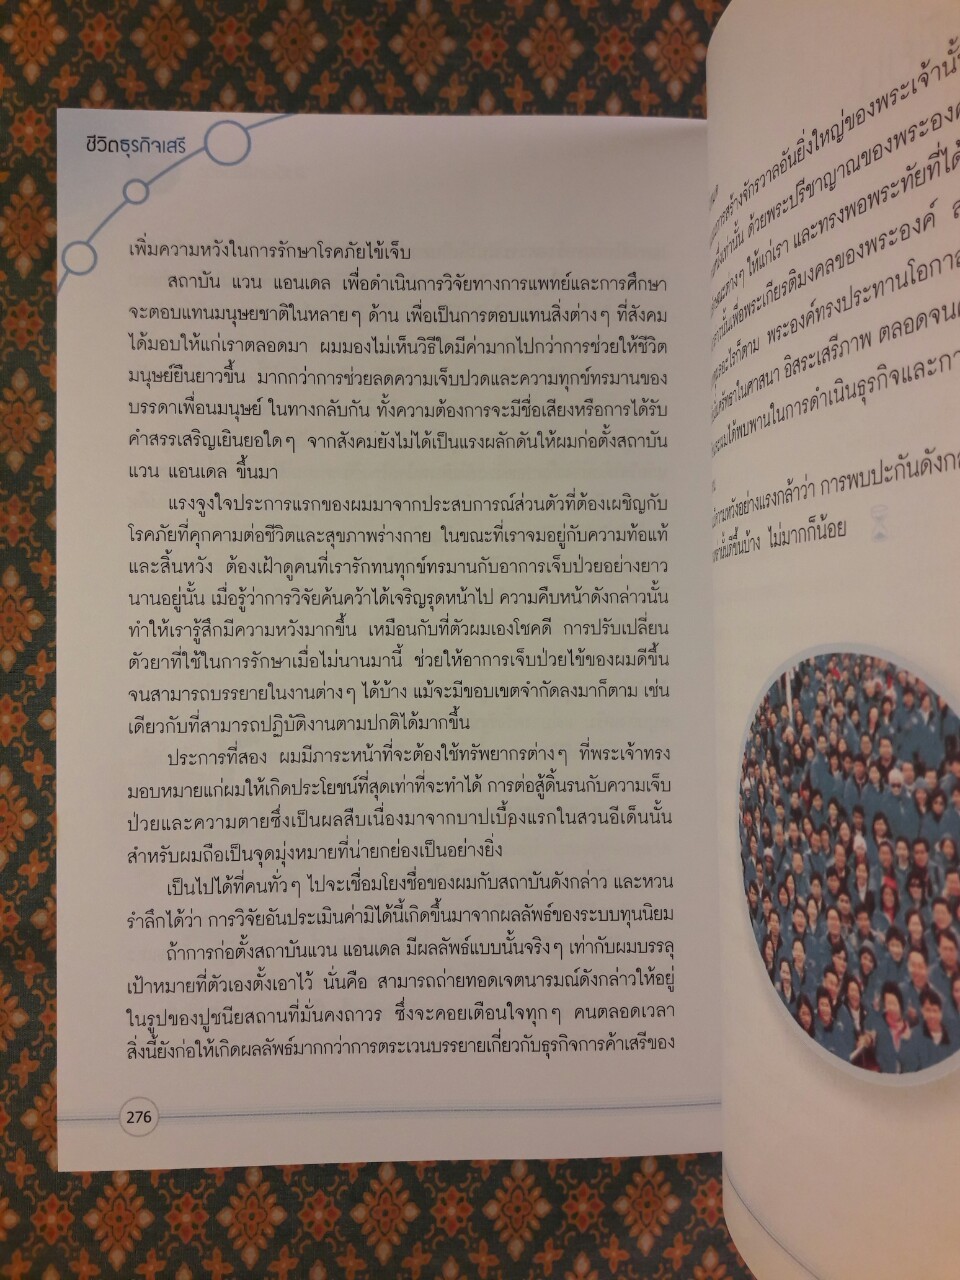 ชีวิตธุรกิจเสรี
เพิ่มความหวังในการรักษาโรคภัยไข้เจ็บ
สถาบัน แวน แอนเดล เพื่อดำเนินการวิจัยทางการแพทย์และการศึกษา
จะตอบแทนมนุษยชาติในหลายๆ ด้าน เพื่อเป็นการตอบแทนสิ่งต่างๆ ที่สังคม
ได้มอบให้แก่เราตลอดมา ผมมองไม่เห็นวิธีใดมีค่ามากไปกว่าการช่วยให้ชีวิต
มนุษย์ยืนยาวขึ้น มากกว่าการช่วยลดความเจ็บปวดและความทุกข์ทรมานของ
บรรดาเพื่อนมนุษย์ ในทางกลับกัน ทั้งความต้องการจะมีชื่อเสียงหรือการได้รับ
คำสรรเสริญเยินยอใดๆ จากสังคมยังไม่ได้เป็นแรงผลักดันให้ผมก่อตั้งสถาบัน
แวน แอนเดล ขึ้นมา
แรงจูงใจประการแรกของผมมาจากประสบการณ์ส่วนตัวที่ต้องเผชิญกับ
โรคภัยที่คุกคามต่อชีวิตและสุขภาพร่างกาย ในขณะที่เราจมอยู่กับความท้อแท้
และสิ้นหวัง ต้องเฝ้าดูคนที่เรารักทนทุกข์ทรมานกับอาการเจ็บป่วยอย่างยาว
นานอยู่นั้น เมื่อรู้ว่าการวิจัยค้นคว้าได้เจริญรุดหน้าไป ความคืบหน้าดังกล่าวนั้น
ทำให้เรารู้สึกมีความหวังมากขึ้น เหมือนกับที่ตัวผมเองโชคดี การปรับเปลี่ยน
ตัวยาที่ใช้ในการรักษาเมื่อไม่นานมานี้ ช่วยให้อาการเจ็บป่วยไข้ของผมดีขึ้น
จนสามารถบรรยายในงานต่างๆ ได้บ้าง แม้จะมีขอบเขตจำกัดลงมาก็ตาม เช่น
เดียวกับที่สามารถปฏิบัติงานตามปกติได้มากขึ้น
ประการที่สอง ผมมีภาระหน้าที่จะต้องใช้ทรัพยากรต่างๆ ที่พระเจ้าทรง
มอบหมายแก่ผมให้เกิดประโยชน์ที่สุดเท่าที่จะทำได้ การต่อสู้ดิ้นรนกับความเจ็บ
ป่วยและความตายซึ่งเป็นผลสืบเนื่องมาจากบาปเบื้องแรกในสวนอีเด็นนั้น
สำหรับผมถือเป็นจุดมุ่งหมายที่น่ายกย่องเป็นอย่างยิ่ง
เป็นไปได้ที่คนทั่วๆ ไปจะเชื่อมโยงชื่อของผมกับสถาบันดังกล่าว และหวน
รำลึกได้ว่า การวิจัยอันประเมินค่ามิได้นี้เกิดขึ้นมาจากผลลัพธ์ของระบบทุนนิยม
ถ้าการก่อตั้งสถาบันแวน แอนเดล มีผลลัพธ์แบบนั้นจริงๆ เท่ากับผมบรรลุ
เป้าหมายที่ตัวเองตั้งเอาไว้ นั่นคือ สามารถถ่ายทอดเจตนารมณ์ดังกล่าวให้อยู่
ในรูปของปูชนียสถานที่มั่นคงถาวร ซึ่งจะคอยเตือนใจทุกๆ คนตลอดเวลา
สิ่งนี้ยังก่อให้เกิดผลลัพธ์มากกว่าการตระเวนบรรยายเกี่ยวกับธุรกิจการค้าเสรีของ
276
การสร้างจักรวาลอันยิ่งใหญ่ของพระเจ้านั้น
เท่านั้น ด้วยพระปรีชาญาณของพระองค์
ต่างๆ ให้แก่เรา และทรงพอพระทัยที่ได้
นั้นเพื่อพระเกียรติมงคลของพระองค์
อะไรก็ตาม พระองค์ทรงประทานโอกาส
ศรัทธาในศาสนา อิสระเสรีภาพ ตลอดจน
ได้พบพานในการดำเนินธุรกิจและ
ความหวังอย่างแรงกล้าว่า การพบปะกัน
นั้นดีขึ้นบ้าง ไม่มากก็น้อย